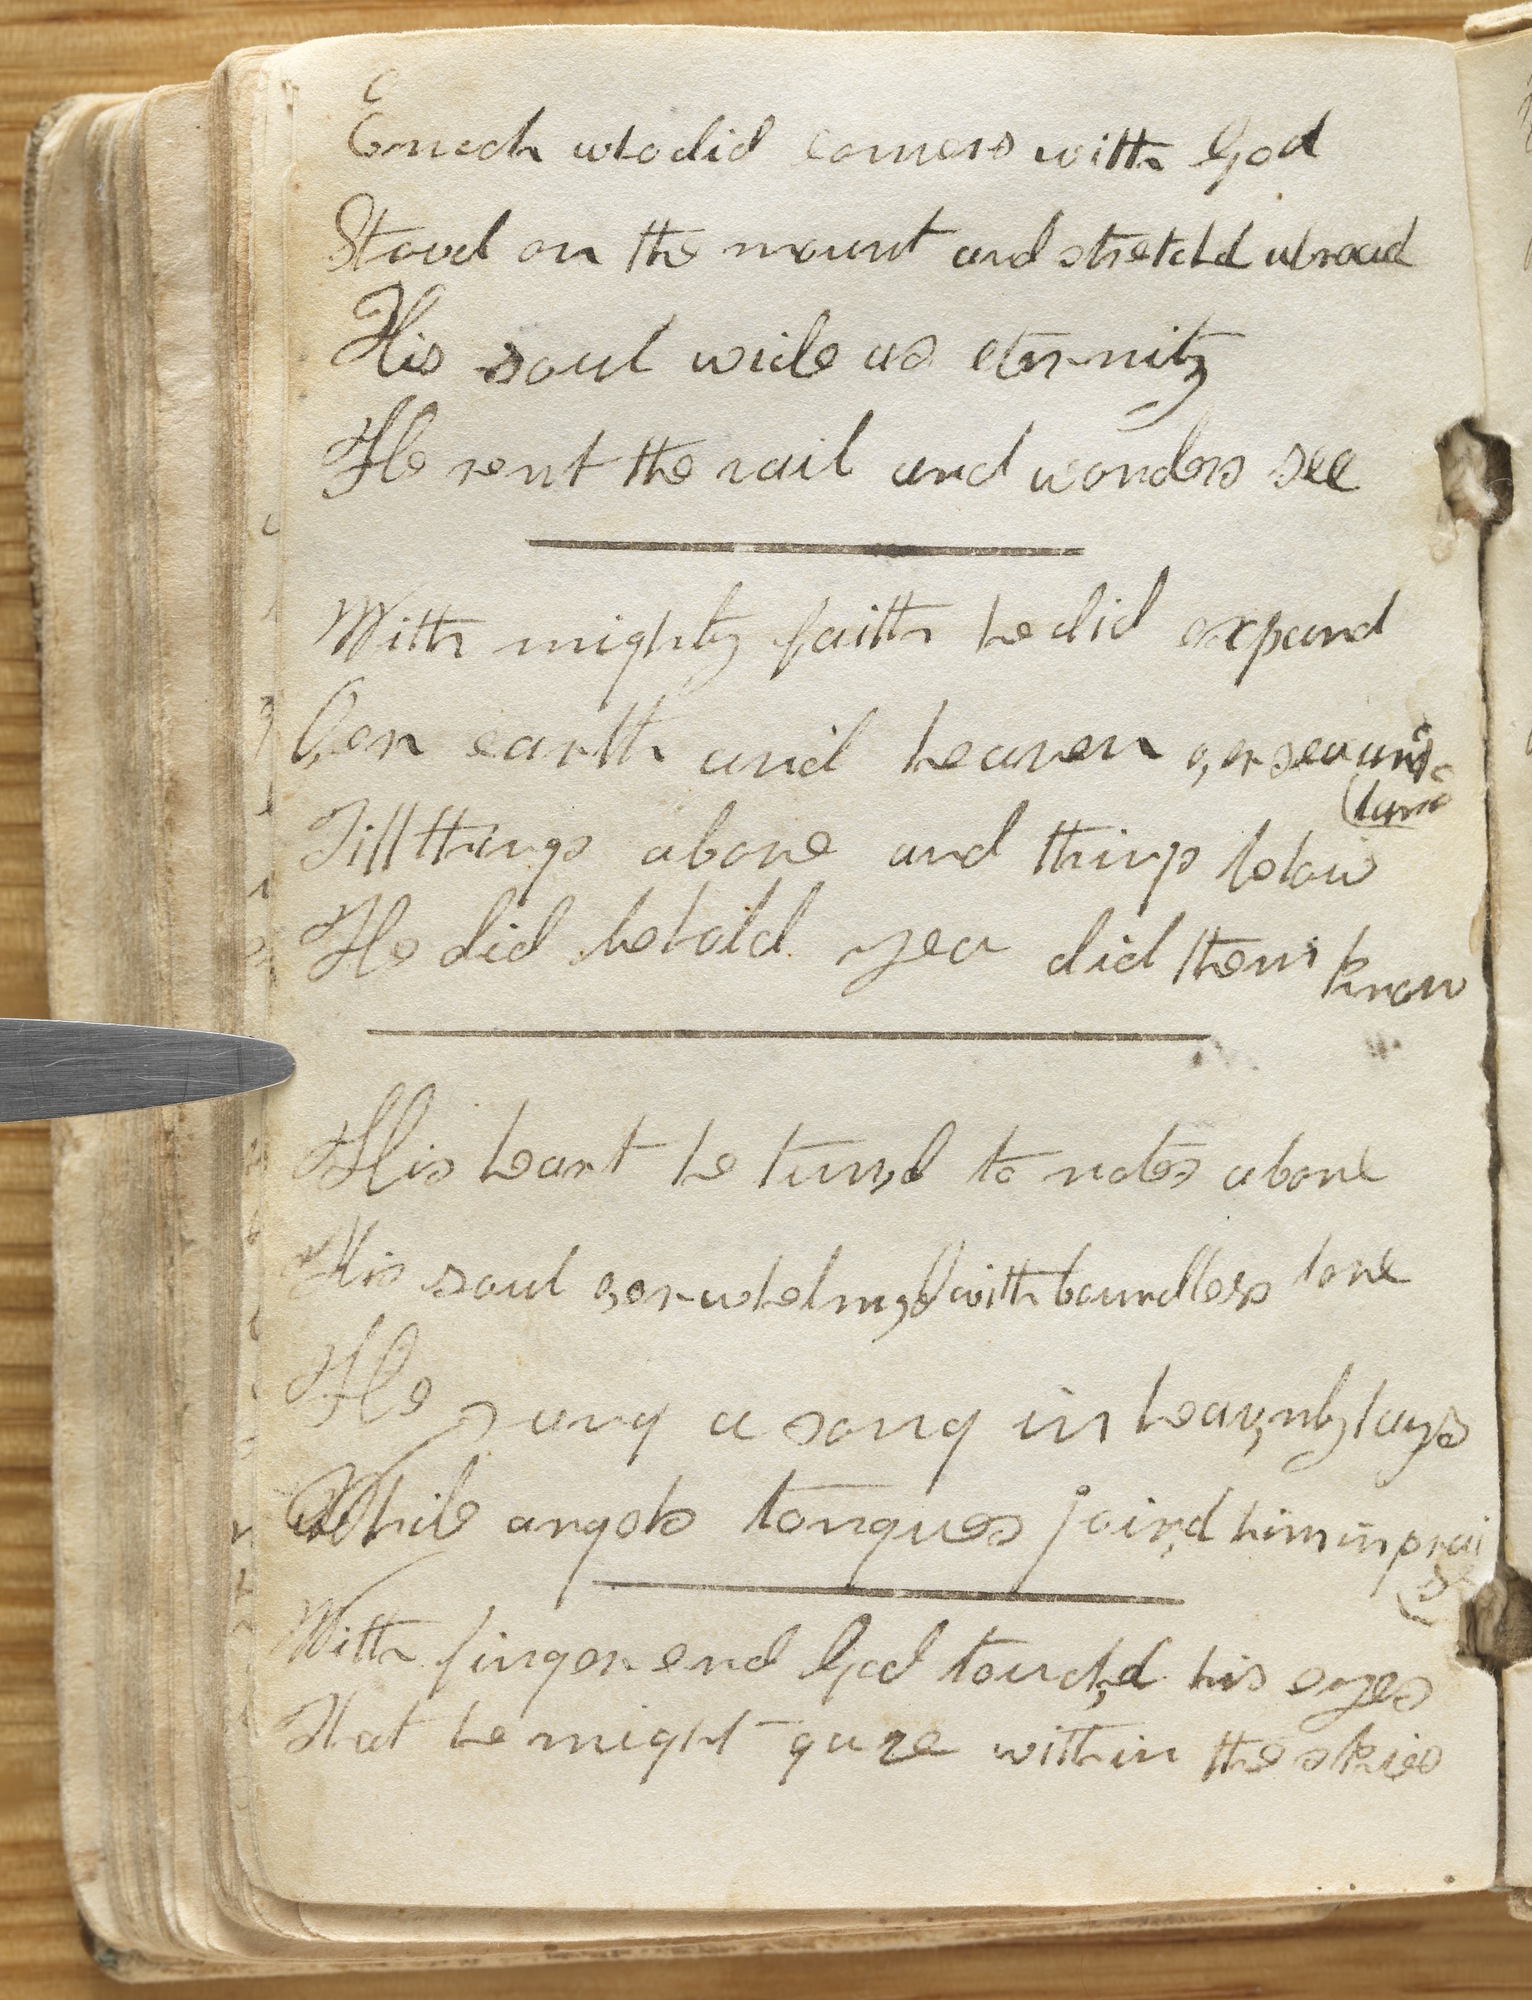 Enoch who did convers with God
Stood on the mount and stretchd abroad
His soul wide as eternity
He rent the vail and wonders see
With mighty faith he did expand
O,er earth and heaven o,er sea and
(land
Till things above and things below
He did behold yea did them know
His heart he tun,d to notes above
His soul o,erwhelm,d with boundless love
He sung a song in heav,nly lays
While angels tongues join,d him in prai
(se
With finger end God touch,d his eyes
That he might gaze within the skies